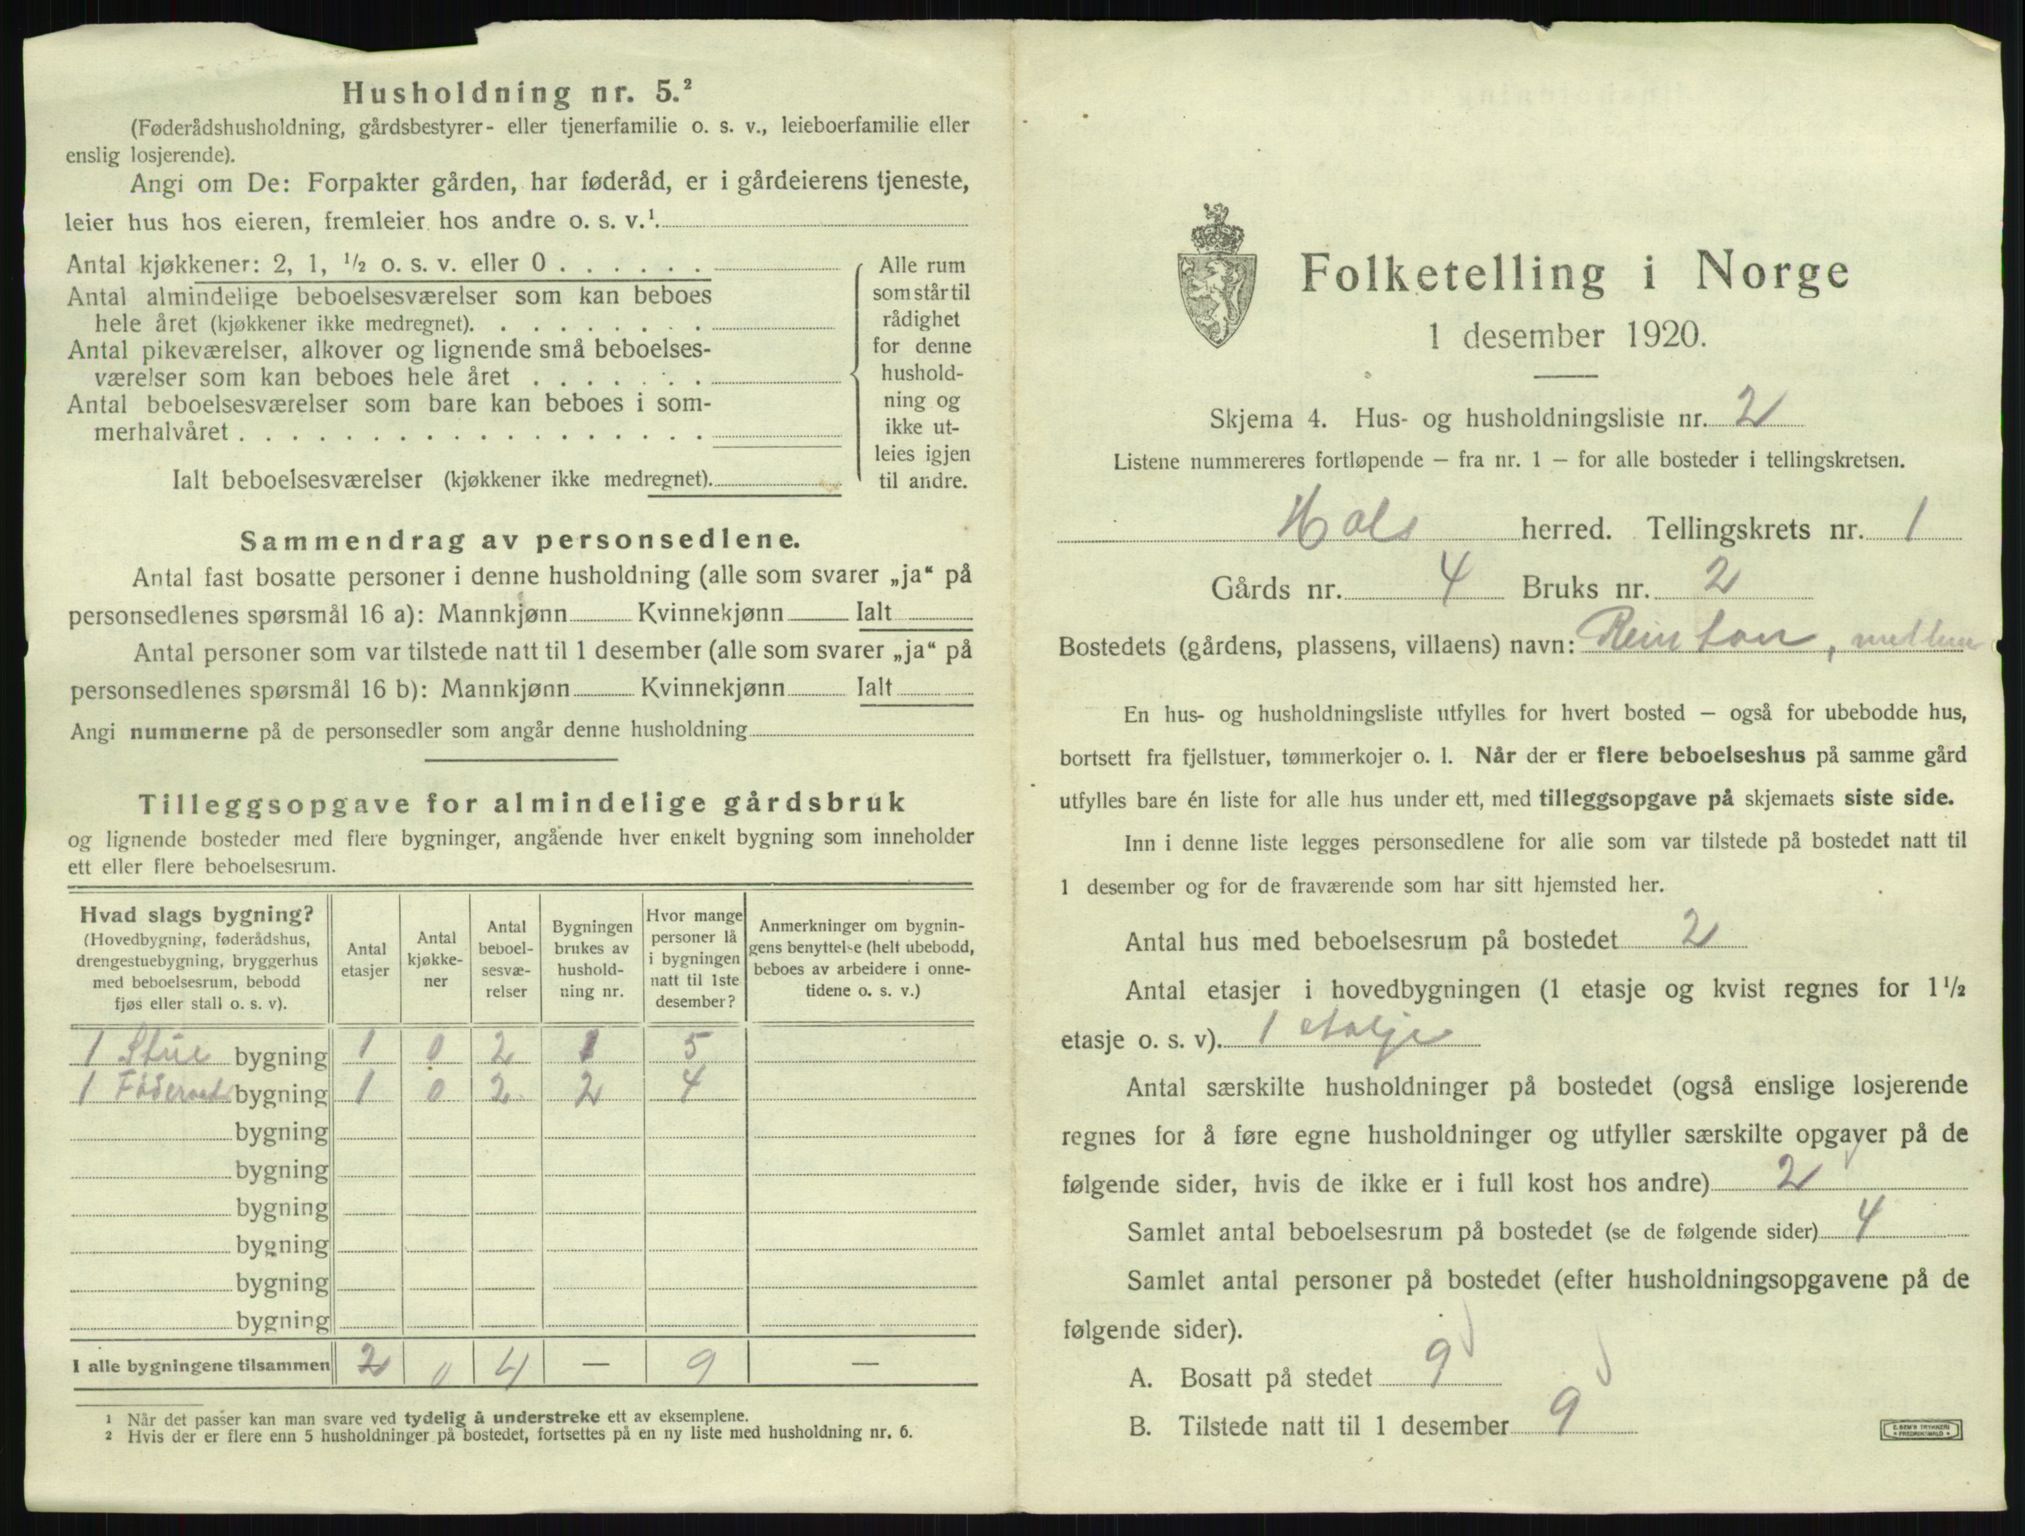 Husholdning nr. 5.²
(Føderådshusholdning, gårdsbestyrer- eller tjenerfamilie o. s. v., leieboerfamilie eller
enslig losjerende).
Angi om De: Forpakter gården, har føderåd, er i gårdeierens tjeneste,
leier hus hos eieren, fremleier hos andre o. s. v.¹.
Antal kjøkkener: 2, 1, ½ o. s. v. eller 0 . . . . . .
Antal almindelige beboelsesværelser som kan beboes
hele året (kjøkkener ikke medregnet). . . . . . . . .
Antal pikeværelser, alkover og lignende små beboelses-
værelser som kan beboes hele året . . . . . . .
Antal beboelsesværelser som bare kan beboes i som-
merhalvåret . . . . . . . . . . . . . . . . . .
Ialt beboelsesværelser (kjøkkener ikke medregnet).
Alle rum
som står til
rådighet
for denne
hushold-
ning og
ikke ut-
leies igjen
til andre.
Sammendrag av personsedlene.
Antal fast bosatte personer i denne husholdning (alle som svarer „ja“ på
personsedlenes spørsmål 16 a): Mannkjønn Kvinnekjønn Ialt
Antal personer som var tilstede natt til 1 desember (alle som svarer „ja“ på
personsedlenes spørsmål 16 b): Mannkjønn Kvinnekjønn Ialt
Angi nummerne på de personsedler som angår denne husholdning
Tilleggsopgave for almindelige gårdsbruk
og lignende bosteder med flere bygninger, angående hver enkelt bygning som inneholder
ett eller flere beboelsesrum.
Hvad slags bygning?
(Hovedbygning, føderådshus,
drengestuebygning, bryggerhus
med beboelsesrum, bebodd
fjøs eller stall o. s. v).
Antal
etasjer
Antal
kjøkke-
ner
Antal
beboel-
sesvæ-
relser
Bygningen
brukes av
hushold-
ning nr.
Hvor mange
personer lå
i bygningen
natt til 1ste
desember?
Anmerkninger om bygnin-
gens benyttelse (helt ubebodd,
beboes av arbeidere i onne-
tidene o. s. v.)
1 Stue bygning 1 0 2 1 5
1 Føderaads bygning 1 0 2 2 4
bygning
bygning
bygning
bygning
bygning
bygning
I alle bygningene tilsammen 2 0 4 — 9 —
¹ Når det passer kan man svare ved tydelig å understreke ett av eksemplene.
² Hvis der er flere enn 5 husholdninger på bostedet, fortsettes på en ny liste med husholdning nr. 6.
Folketelling i Norge
1 desember 1920.
Skjema 4. Hus- og husholdningsliste nr. 2
Listene nummereres fortløpende — fra nr. 1 — for alle bosteder i tellingskretsen.
Hols herred. Tellingskrets nr. 1
Gårds nr. 4 Bruks nr. 2
Bostedets (gårdens, plassens, villaens) navn: Reinton, mellem
En hus- og husholdningsliste utfylles for hvert bosted — også for ubebodde hus,
bortsett fra fjellstuer, tømmerkojer o. l. Når der er flere beboelseshus på samme gård
utfylles bare én liste for alle hus under ett, med tilleggsopgave på skjemaets siste side.
Inn i denne liste legges personsedlene for alle som var tilstede på bostedet natt til
1 desember og for de fraværende som har sitt hjemsted her.
Antal hus med beboelsesrum på bostedet 2
Antal etasjer i hovedbygningen (1 etasje og kvist regnes for 1½
etasje o. s. v). 1 etasje
Antal særskilte husholdninger på bostedet (også enslige losjerende
regnes for å føre egne husholdninger og utfyller særskilte opgaver på de
følgende sider, hvis de ikke er i full kost hos andre) 2
Samlet antal beboelsesrum på bostedet (se de følgende sider) 4
Samlet antal personer på bostedet (efter husholdningsopgavene på de
følgende sider).
A. Bosatt på stedet 9
B. Tilstede natt til 1 desember 9